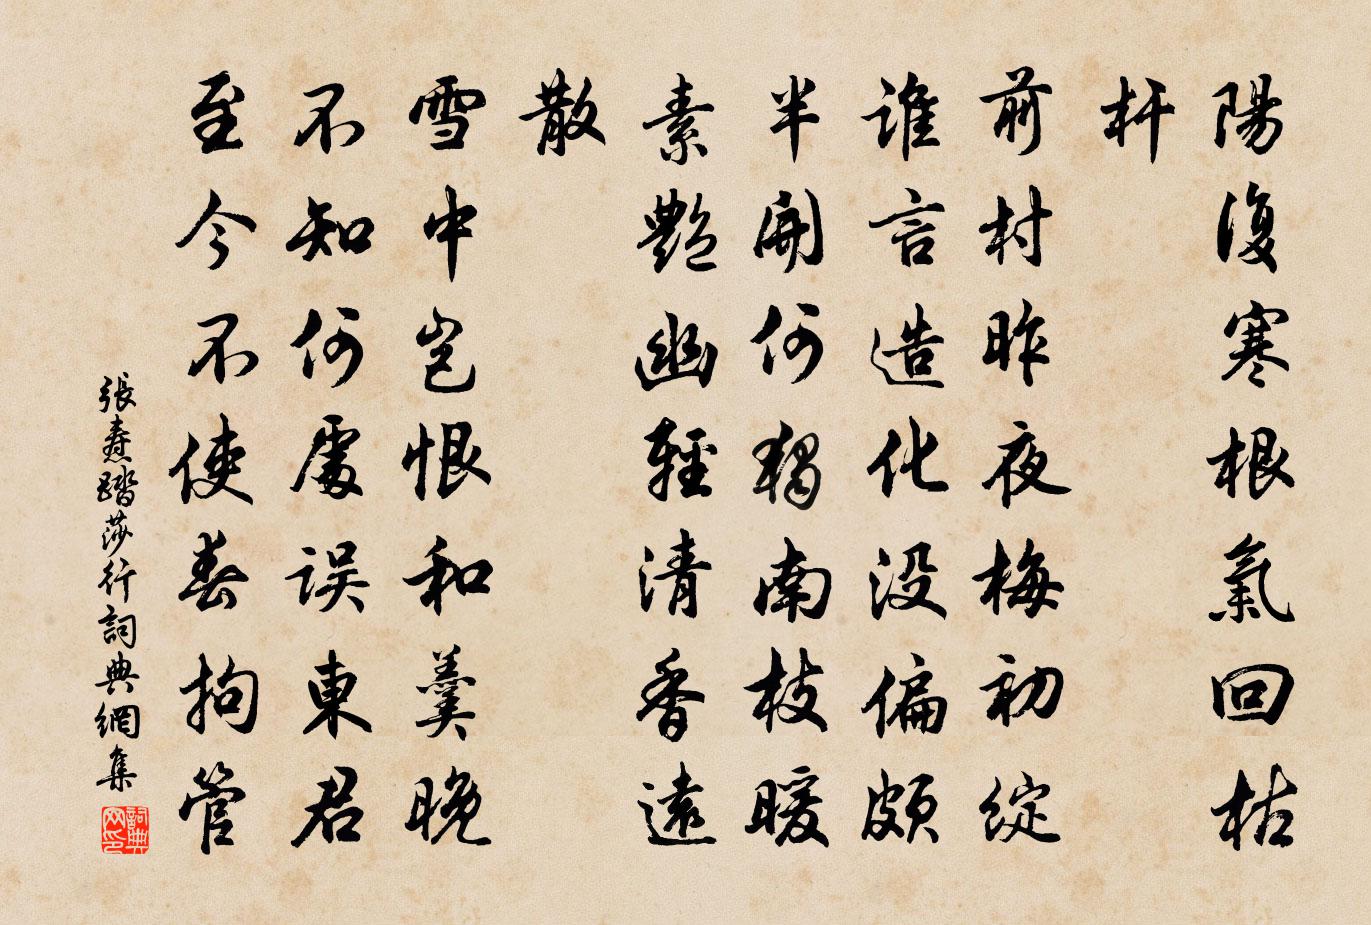 陽復寒根氣回枯
杆
前村昨夜梅初綻
誰言造化没偏頗
半開何獨南枝暖
素艷幽輕清香遠
散
雪中岂恨和羹晚
不知何處误東君
至今不使春拘管
張燾踏莎行詞典網集
詞典网印